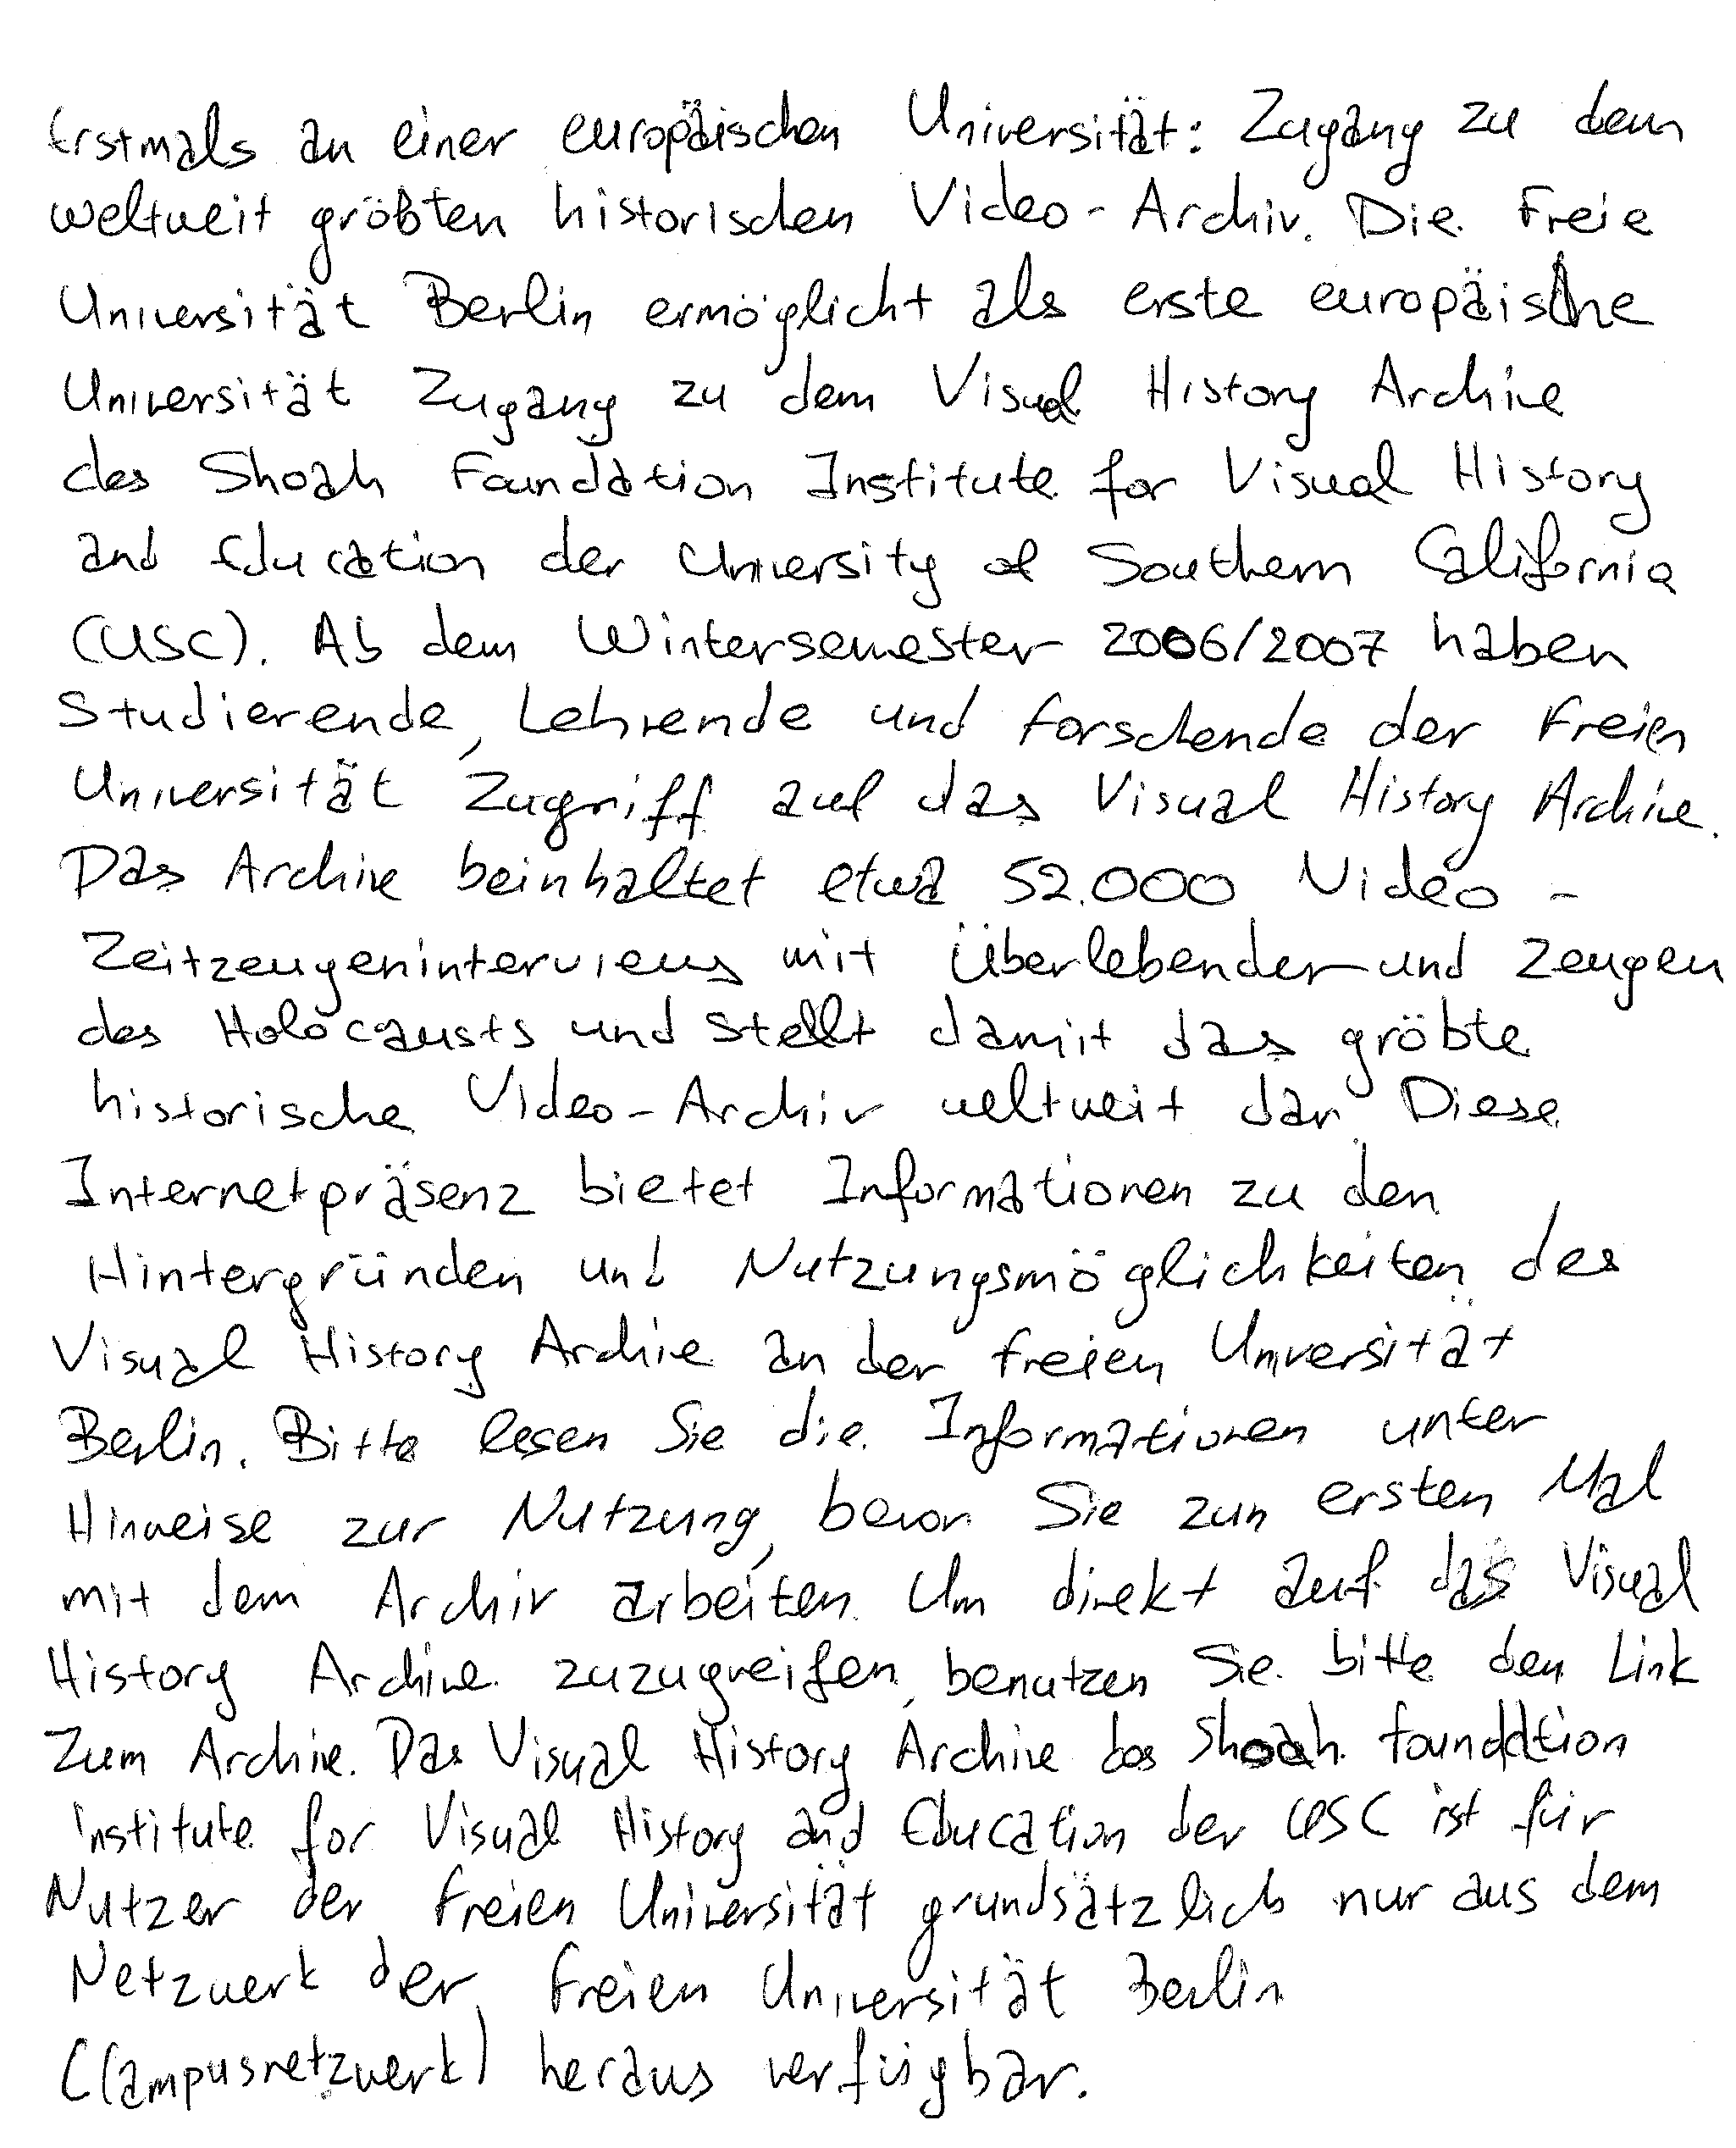 Erstmals an einer europäischen Universität: Zugang zu dem
weltweit größten historischen Video-Archiv. Die Freie
Universität Berlin ermöglicht als erste europäische
Universität Zugang zu dem Visual History Archive
des Shoah Foundation Institute for Visual History
and Education der University of Southern California
(USC). Ab dem Wintersemester 2006/2007 haben
Studierende, Lehrende und Forschende der Freien
Universität Zugriff auf das Visual History Archive.
Das Archive beinhaltet etwa 52.000 Video-
Zeitzeugeninterviews mit Überlebender und Zeugen
des Holocausts und stellt damit das größte
historische Video-Archiv weltweit dar. Diese
Internetpräsenz bietet Informationen zu den
Hintergründen und Nutzungsmöglichkeiten des
Visual History Archive an der Freien Universität
Berlin. Bitte lesen Sie die Informationen unter
Hinweise zur Nutzung, bevor Sie zum ersten Mal
mit dem Archiv arbeiten. Um direkt auf das Visual
History Archive zuzugreifen, benutzen Sie bitte den Link
Zum Archive. Das Visual History Archive des Shoah Foundation
Institute for Visual History and Education der USC ist für
Nutzer der Freien Universität grundsätzlich nur aus dem
Netzwerk der Freien Universität Berlin
(Campusnetzwerk) heraus verfügbar.